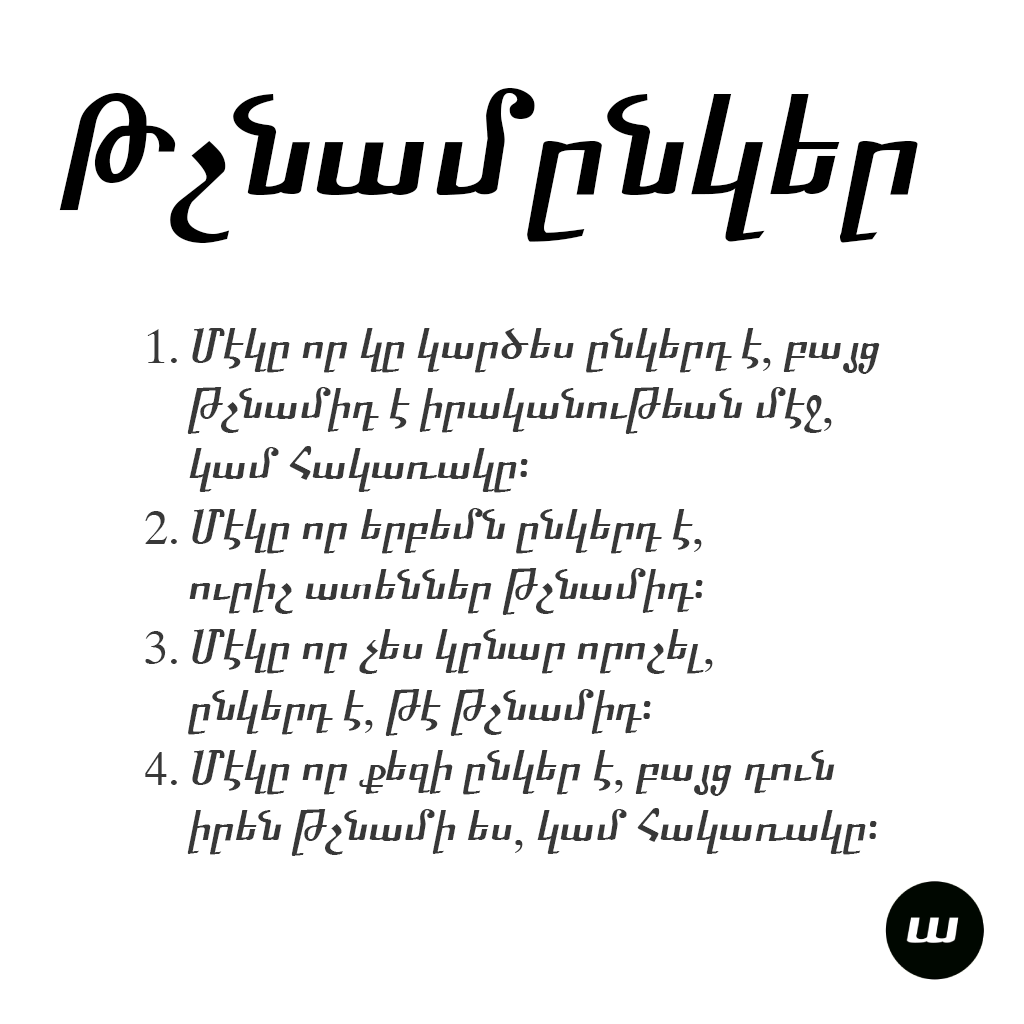 Թշնամընկեր
1. Մէկը որ կը կարծես ընկերդ է, բայց
թշնամիդ է իրականութեան մէջ,
կամ հակառակը։
2. Մէկը որ երբեմն ընկերդ է,
ուրիշ ատեններ թշնամիդ։
3. Մէկը որ չես կրնար որոշել,
ընկերդ է, թէ թշնամիդ։
4. Մէկը որ քեզի ընկեր է, բայց դուն
իրեն թշնամի ես, կամ հակառակը։
ա